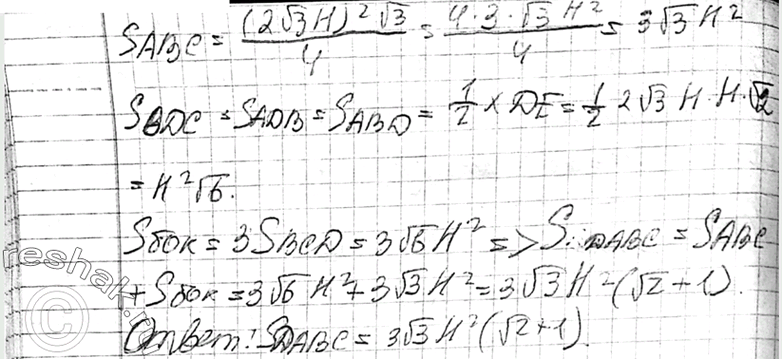 S_ABC = (2√3H)²√3/4 = 4·3·√3H²/4 = 3√3H²
S_BDC = S_ADB = S_ABD = 1/2 x DE = 1/2 2√3 H·H·√2
= H²√6.
Sбок = 3S_BCD = 3√6H² => S: DABC = S_ABC
+ Sбок = 3√6H² + 3√3H² = 3√3H²(√2+1).
Ответ: S_DABC = 3√3H²(√2+1).
reshak.ru
©